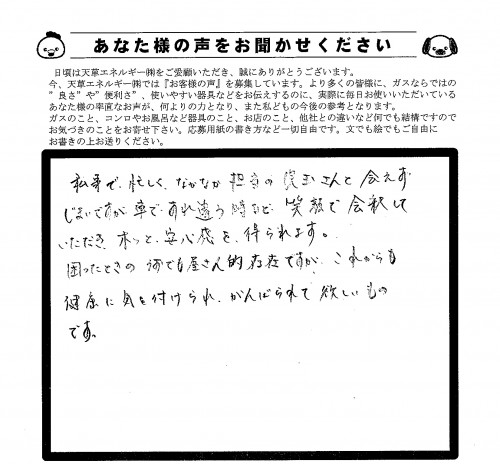 あなた様の声をお聞かせください
日頃は天草エネルギー㈱をご愛顧いただき、誠にありがとうございます。
今、天草エネルギー㈱では『お客様の声』を募集しています。より多くの皆様に、ガスならではの
”良さ”や”便利さ”、使いやすい器具などをお伝えするのに、実際に毎日お使いいただいている
あなた様の率直なお声が、何よりの力となり、また私どもの今後の参考となります。
ガスのこと、コンロやお風呂など器具のこと、お店のこと、他社との違いなど何でも結構ですので
お気づきのことをお寄せ下さい。応募用紙の書き方など一切自由です。文でも絵でもご自由に
お書きの上お送りください。
私事で、忙しく、なかなか担当の さんと会えず
じまいですが、車ですれ違う時など、笑顔で会釈して
いただき、ホッと、安心感を、得られます。
困ったときの何でも屋さん的存在ですが、これからも
健康に気を付けられ、がんばられて欲しいもの
です。